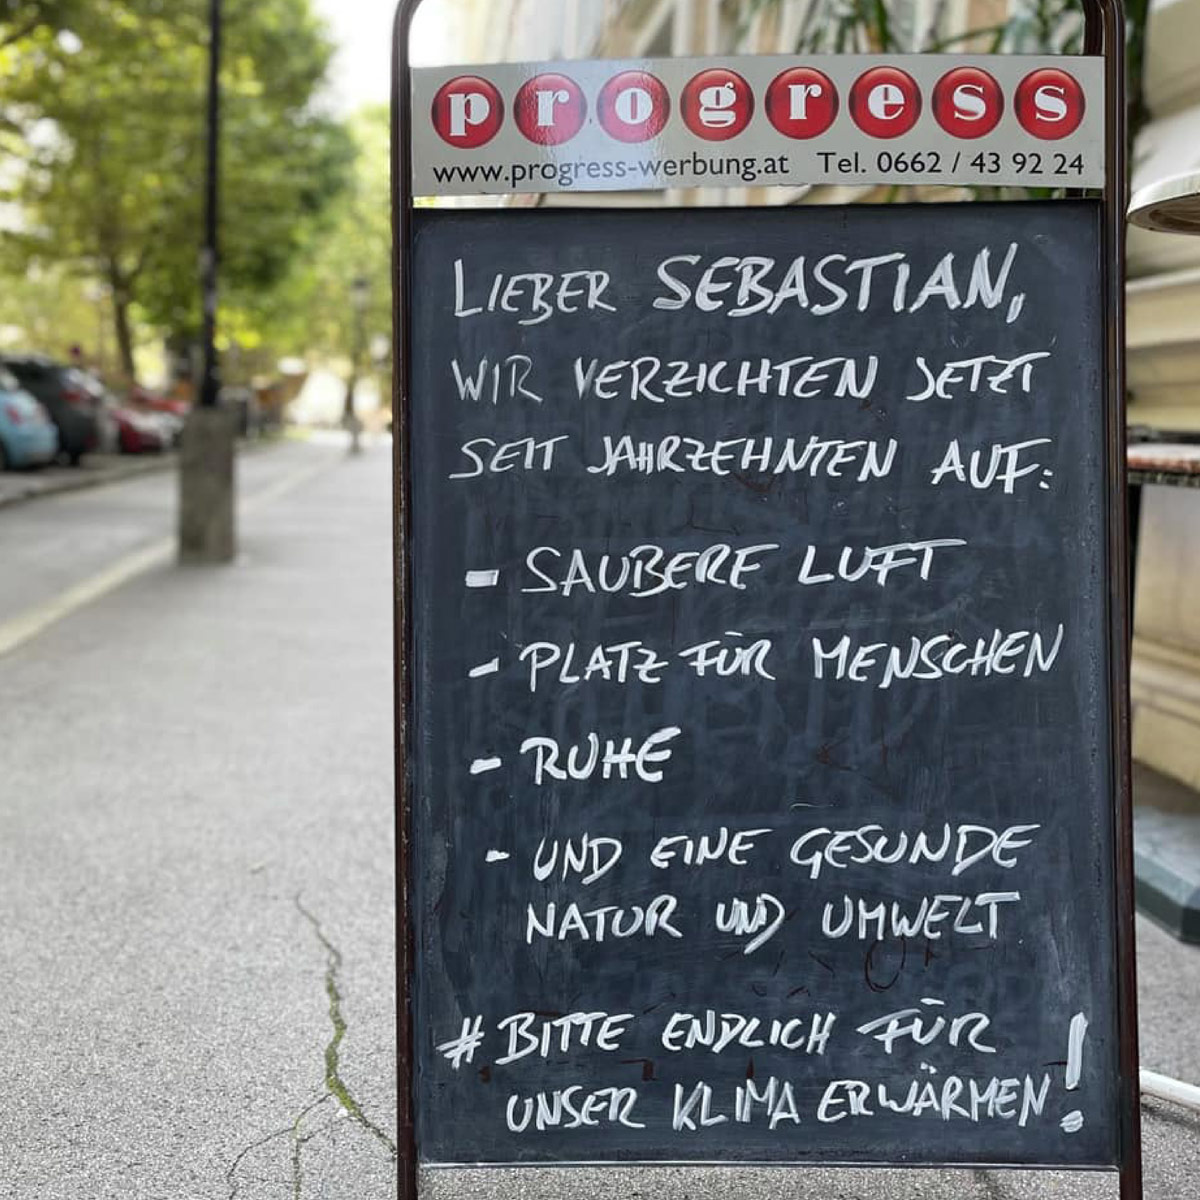 progress
www.progress-werbung.at Tel. 0662 / 43 92 24
LIEBER SEBASTIAN,
WIR VERZICHTEN JETZT
SEIT JAHRZEHNTEN AUF:
- SAUBERE LUFT
- PLATZ FÜR MENSCHEN
- RUHE
- UND EINE GESUNDE
NATUR UND UMWELT
# BITTE ENDLICH FÜR
UNSER KLIMA ERWÄRMEN!